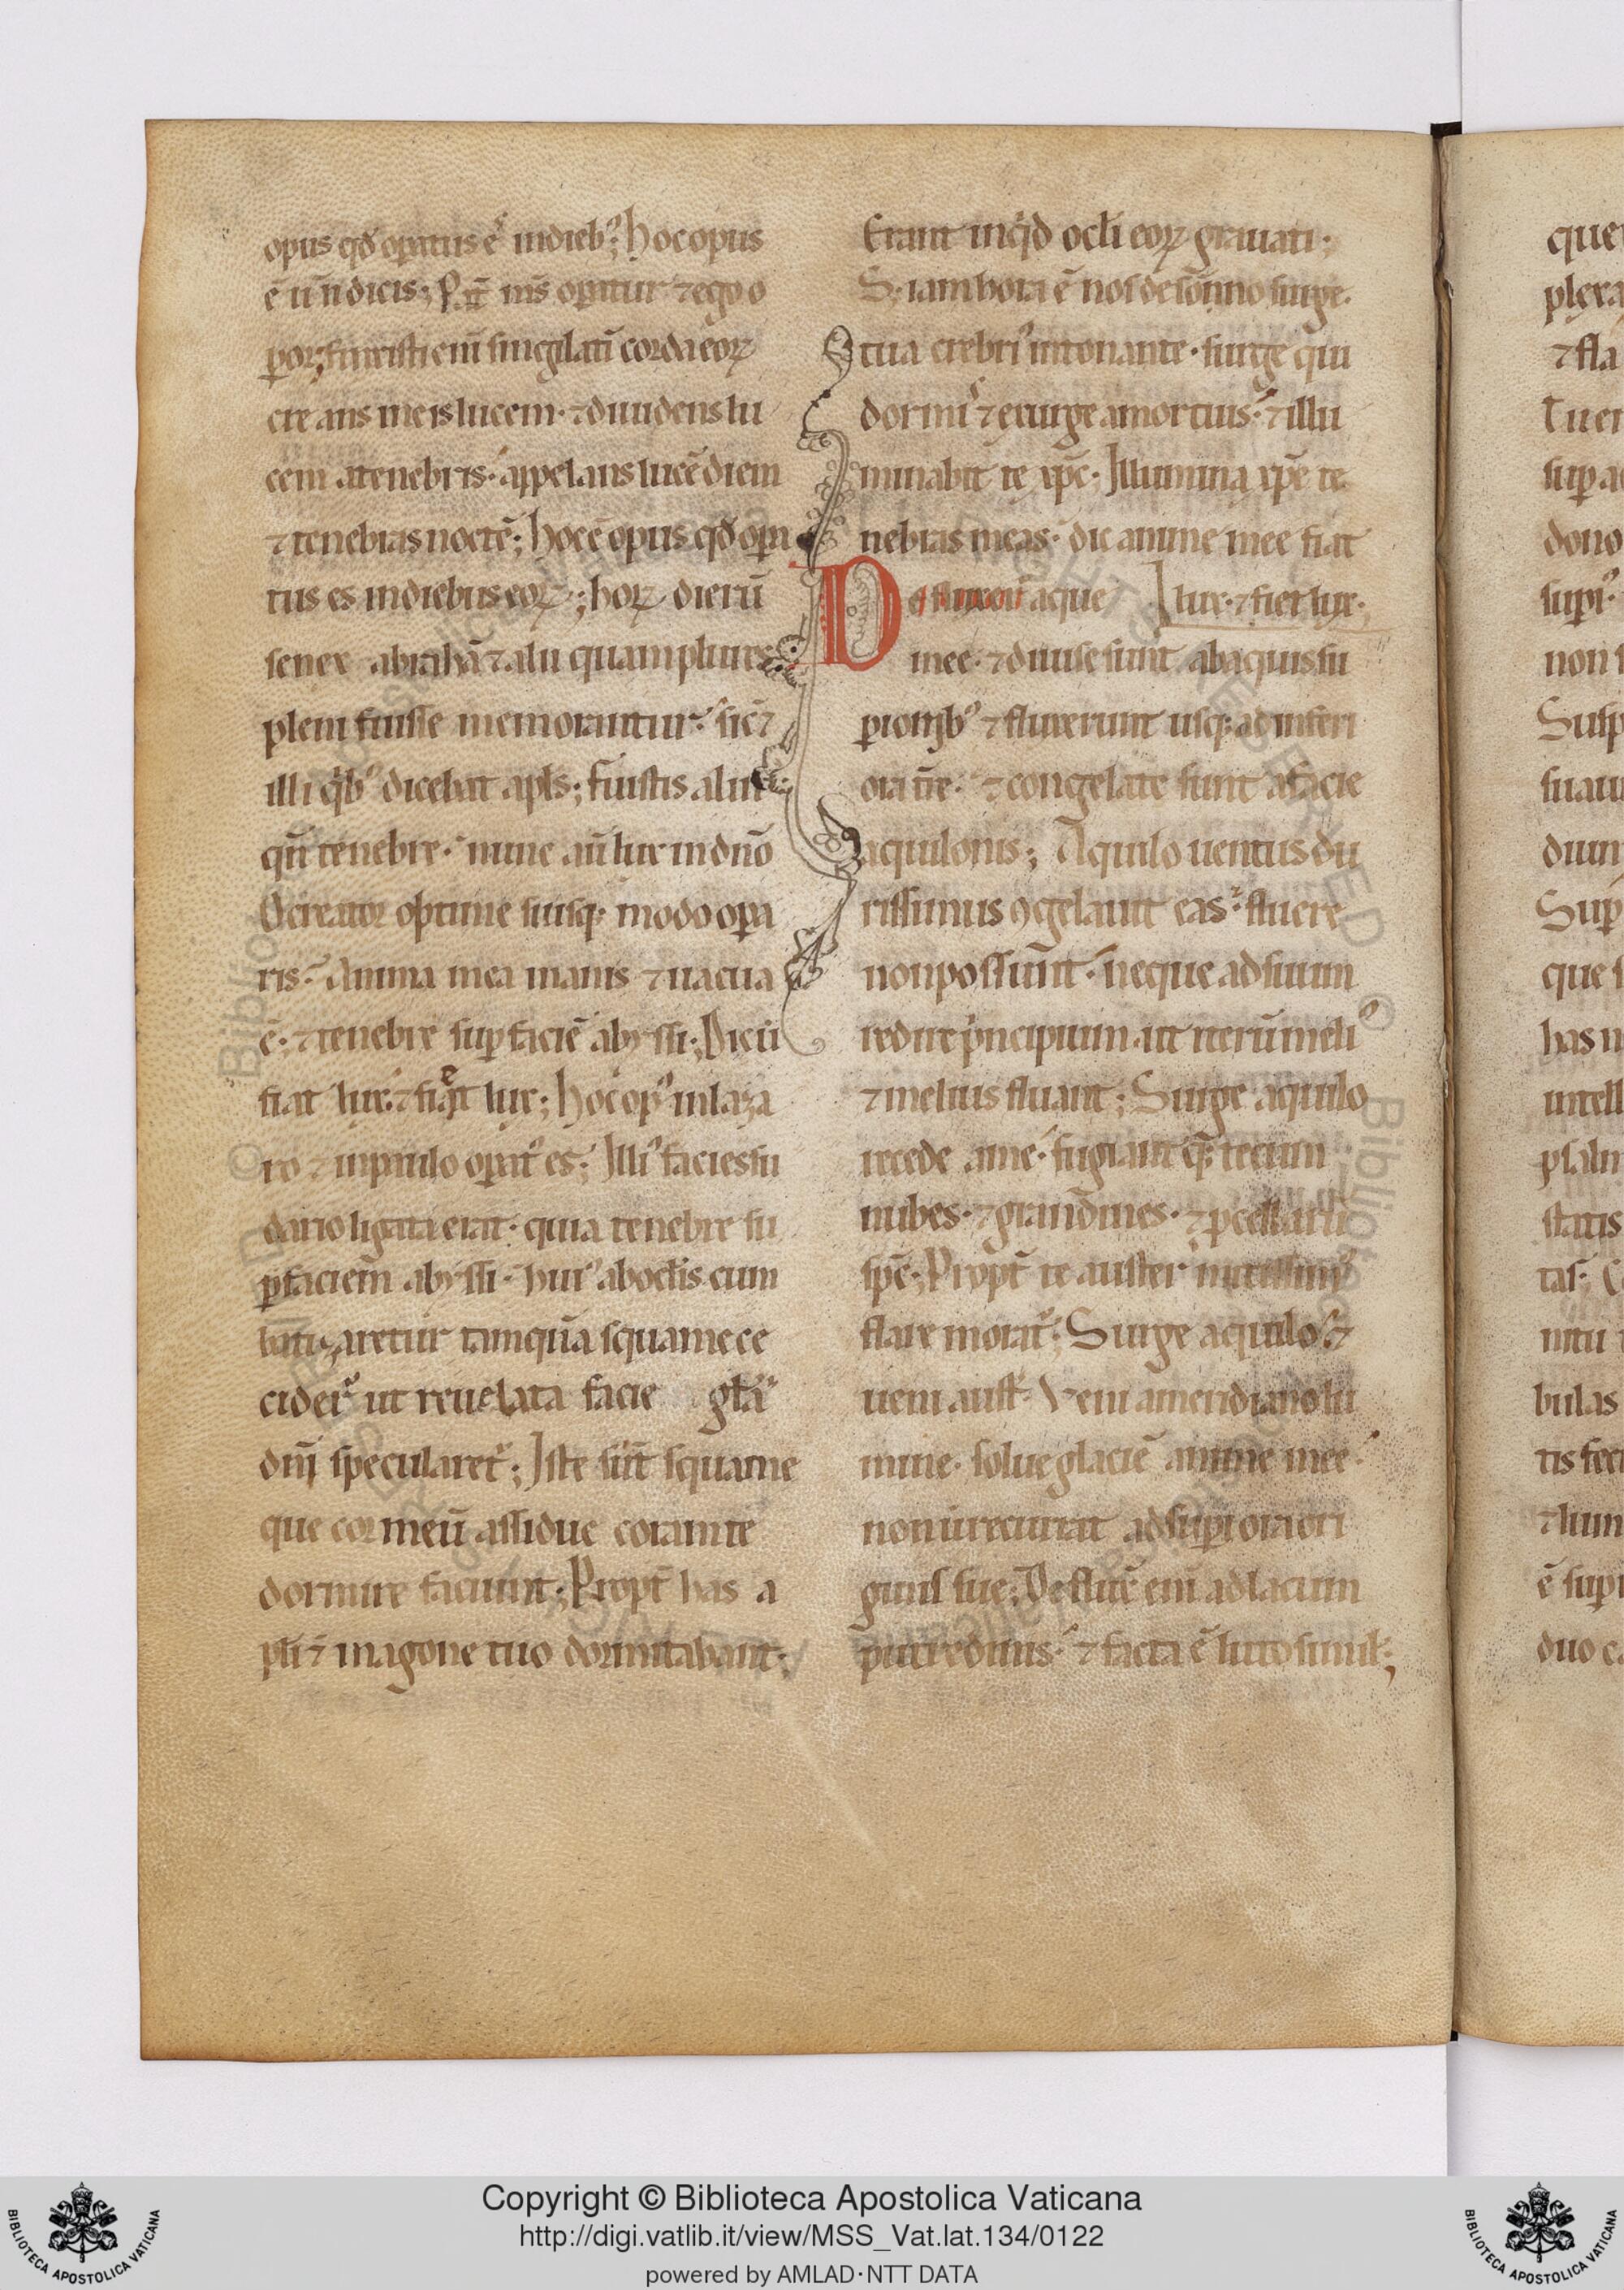 opus qđ opatus ē indieb⁹; hoc opus
ē un̄ dicis; P. m̄s opatur ⁊ ego o
poꝛ fuisti eni singlati corda eoꝝ
cre ans meis lucem· ⁊ diuidens lu
cem a tenebris· appelans lucē diem
⁊ tenebras noctē; hoc ē opus qđ opa
tus es in diebus eoꝝ; hoꝝ dierū
senex abrahā ⁊ alii quamplures
pleni fuisse memorantur· sic ⁊
illi qib⁹ dicebat apls; fuistis aliq
qn̄ tenebre· nunc aū lux in dno
O creator optime siusq· modo opa
ris· Anima mea inanis ⁊ uacua
ē; ⁊ tenebre sup faciē abyssi; Dic ū
fiat lux· ⁊ fiet lux; hoc op⁹ in laza
ro ⁊ in paulo opat⁹ es; Illi⁹ facies su
dario ligata erat· quia tenebre su
p faciem abyssi· hui⁹ ab oclis cum
batizaretur tamquā squame ce
cider̄ ut reuelata facie glā
dnī specularet̄; Iste sūt squame
que cor meū assidue coram te
dormire faciunt; Propt̄ has a
pli ⁊ in agone tuo dormitabant·
Erant inqid ocli eoꝝ grauati;
S; iam hora ē nos de sōnno surge·
tua crebri⁹ intonante· surge qui
dormi⁹ ⁊ exurge a mortuis· ⁊ illu
minabit te xpc· Illumina xpe te
nebras meas· dic anime mee fiat
lux· ⁊ fiet lux·
De fluxer aque
mee· ⁊ diuise sunt ab aquis su
piorib⁹ ⁊ fluxerunt usq; ad inferi
ora tr̄e· ⁊ congelate sunt a facie
aquilonis; Aquilo uentus du
rissimus ꝯgelauit eas· fluere
non possunt· neque ad suum
redire pincipium ut iterū meli⁹
⁊ melius fluant; Surge aquilo
recede a me· fugiant q tecum
nubes· ⁊ grandines· ⁊ pcellarū
spē; Propt̄ te auster mitissim⁹
flare morat̄; Surge aquilo ⁊
ueni aust̄· Veni a meridiano lu
mine· solue glaciē anime mee·
non ū recurrat ad supiora ori
ginis sue; Defluxē eni ad lacum
putredinis· ⁊ facta ē luto simil;
que
plexa
⁊ fla
Tu er
sup a
dono
supi⁹
non s
Susp
suau
diuin
Sup
que s
has n
intell
psalm
statis
tas;
nitu
bulas
tis fec
⁊ lum
ē supi
duo c
Copyright © Biblioteca Apostolica Vaticana
http://digi.vatlib.it/view/MSS_Vat.lat.134/0122
powered by AMLAD·NTT DATA
BIBLIOTECA APOSTOLICA VATICANA
BIBLIOTECA APOSTOLICA VATICANA